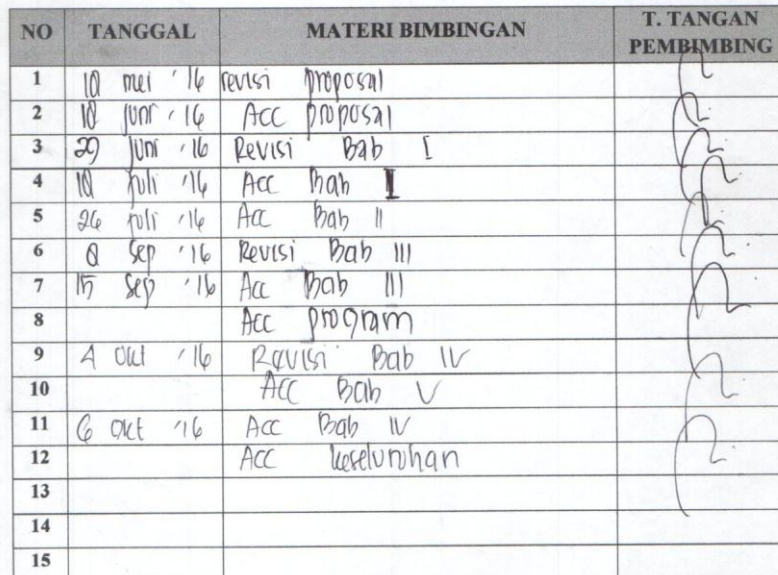 NO TANGGAL MATERI BIMBINGAN T. TANGAN PEMBIMBING
1 10 mei '16 revisi proposal
2 10 juni '16 Acc proposal
3 29 juni '16 Revisi Bab I
4 10 juli '16 Acc Bab I
5 26 juli '16 Acc Bab II
6 8 sep '16 Revisi Bab III
7 15 sep '16 Acc Bab III
8 Acc program
9 4 okt '16 Revisi Bab IV
10 Acc Bab V
11 6 okt '16 Acc Bab IV
12 Acc keseluruhan
13
14
15